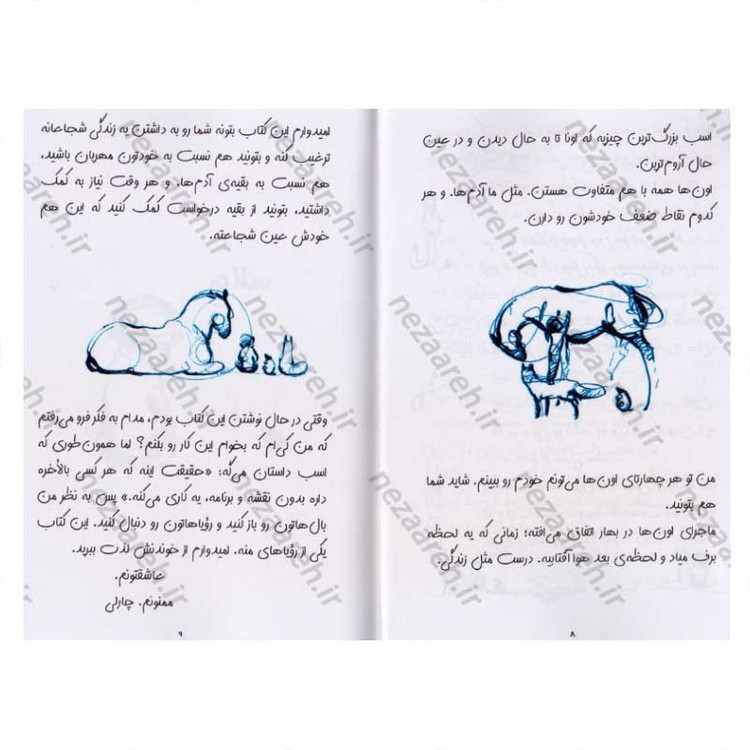 اسب بزرگ‌ترین چیزیه که اونا تا به حال دیدن و در عین
حال آروم‌ترین.
اون‌ها همه با هم متفاوت هستن. مثل ما آدم‌ها. و هر
کدوم نقاط ضعف خودشون رو دارن.
من تو هر چهارتای اون‌ها می‌تونم خودم رو ببینم. شاید شما
هم بتونید.
ماجرای اون‌ها در بهار اتفاق می‌افته؛ زمانی که یه لحظه
برف میاد و لحظه‌ی بعد هوا آفتابیه. درست مثل زندگی.
۸
امیدوارم این کتاب بتونه شما رو به داشتن یه زندگی شجاعانه
ترغیب کنه و بتونید هم نسبت به خودتون مهربان باشید،
هم نسبت به بقیه‌ی آدم‌ها. و هر وقت نیاز به کمک
داشتید، بتونید از بقیه درخواست کمک کنید که این هم
خودش عین شجاعته.
وقتی در حال نوشتن این کتاب بودم، مدام به فکر فرو می‌رفتم
که من کی‌ام که بخوام این کار رو بکنم؟ اما همون‌طوری که
اسب داستان می‌گه: «حقیقت اینه که هر کسی بالأخره
داره بدون نقشه و برنامه، یه کاری می‌کنه.» پس به نظر من
بال‌هاتون رو باز کنید و رؤیاهاتون رو دنبال کنید. این کتاب
یکی از رؤیاهای منه. امیدوارم از خوندنش لذت ببرید.
عاشقتونم.
ممنونم. چارلی
۹
nezaareh.ir